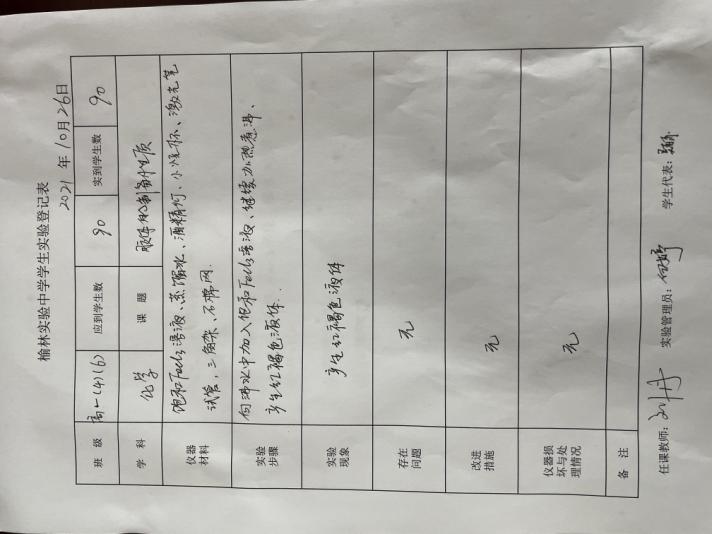 榆林实验中学学生实验登记表
2021 年 10月 26日
班 级 高一(4)(6) 应到学生数 90 实到学生数 90
学 科 化学 课 题 胶体的制备和性质
仪器材料 饱和FeCl3溶液、蒸馏水、酒精灯、小烧杯、激光笔
试管、三角架、石棉网.
实验步骤 向沸水中加入饱和FeCl3溶液、继续加热煮沸、
产生红褐色液体.
实验现象 产生红褐色液体
存在问题 无
改进措施 无
仪器损坏与处理情况 无
备 注
任课教师: 刘丹 实验管理员: 学生代表: